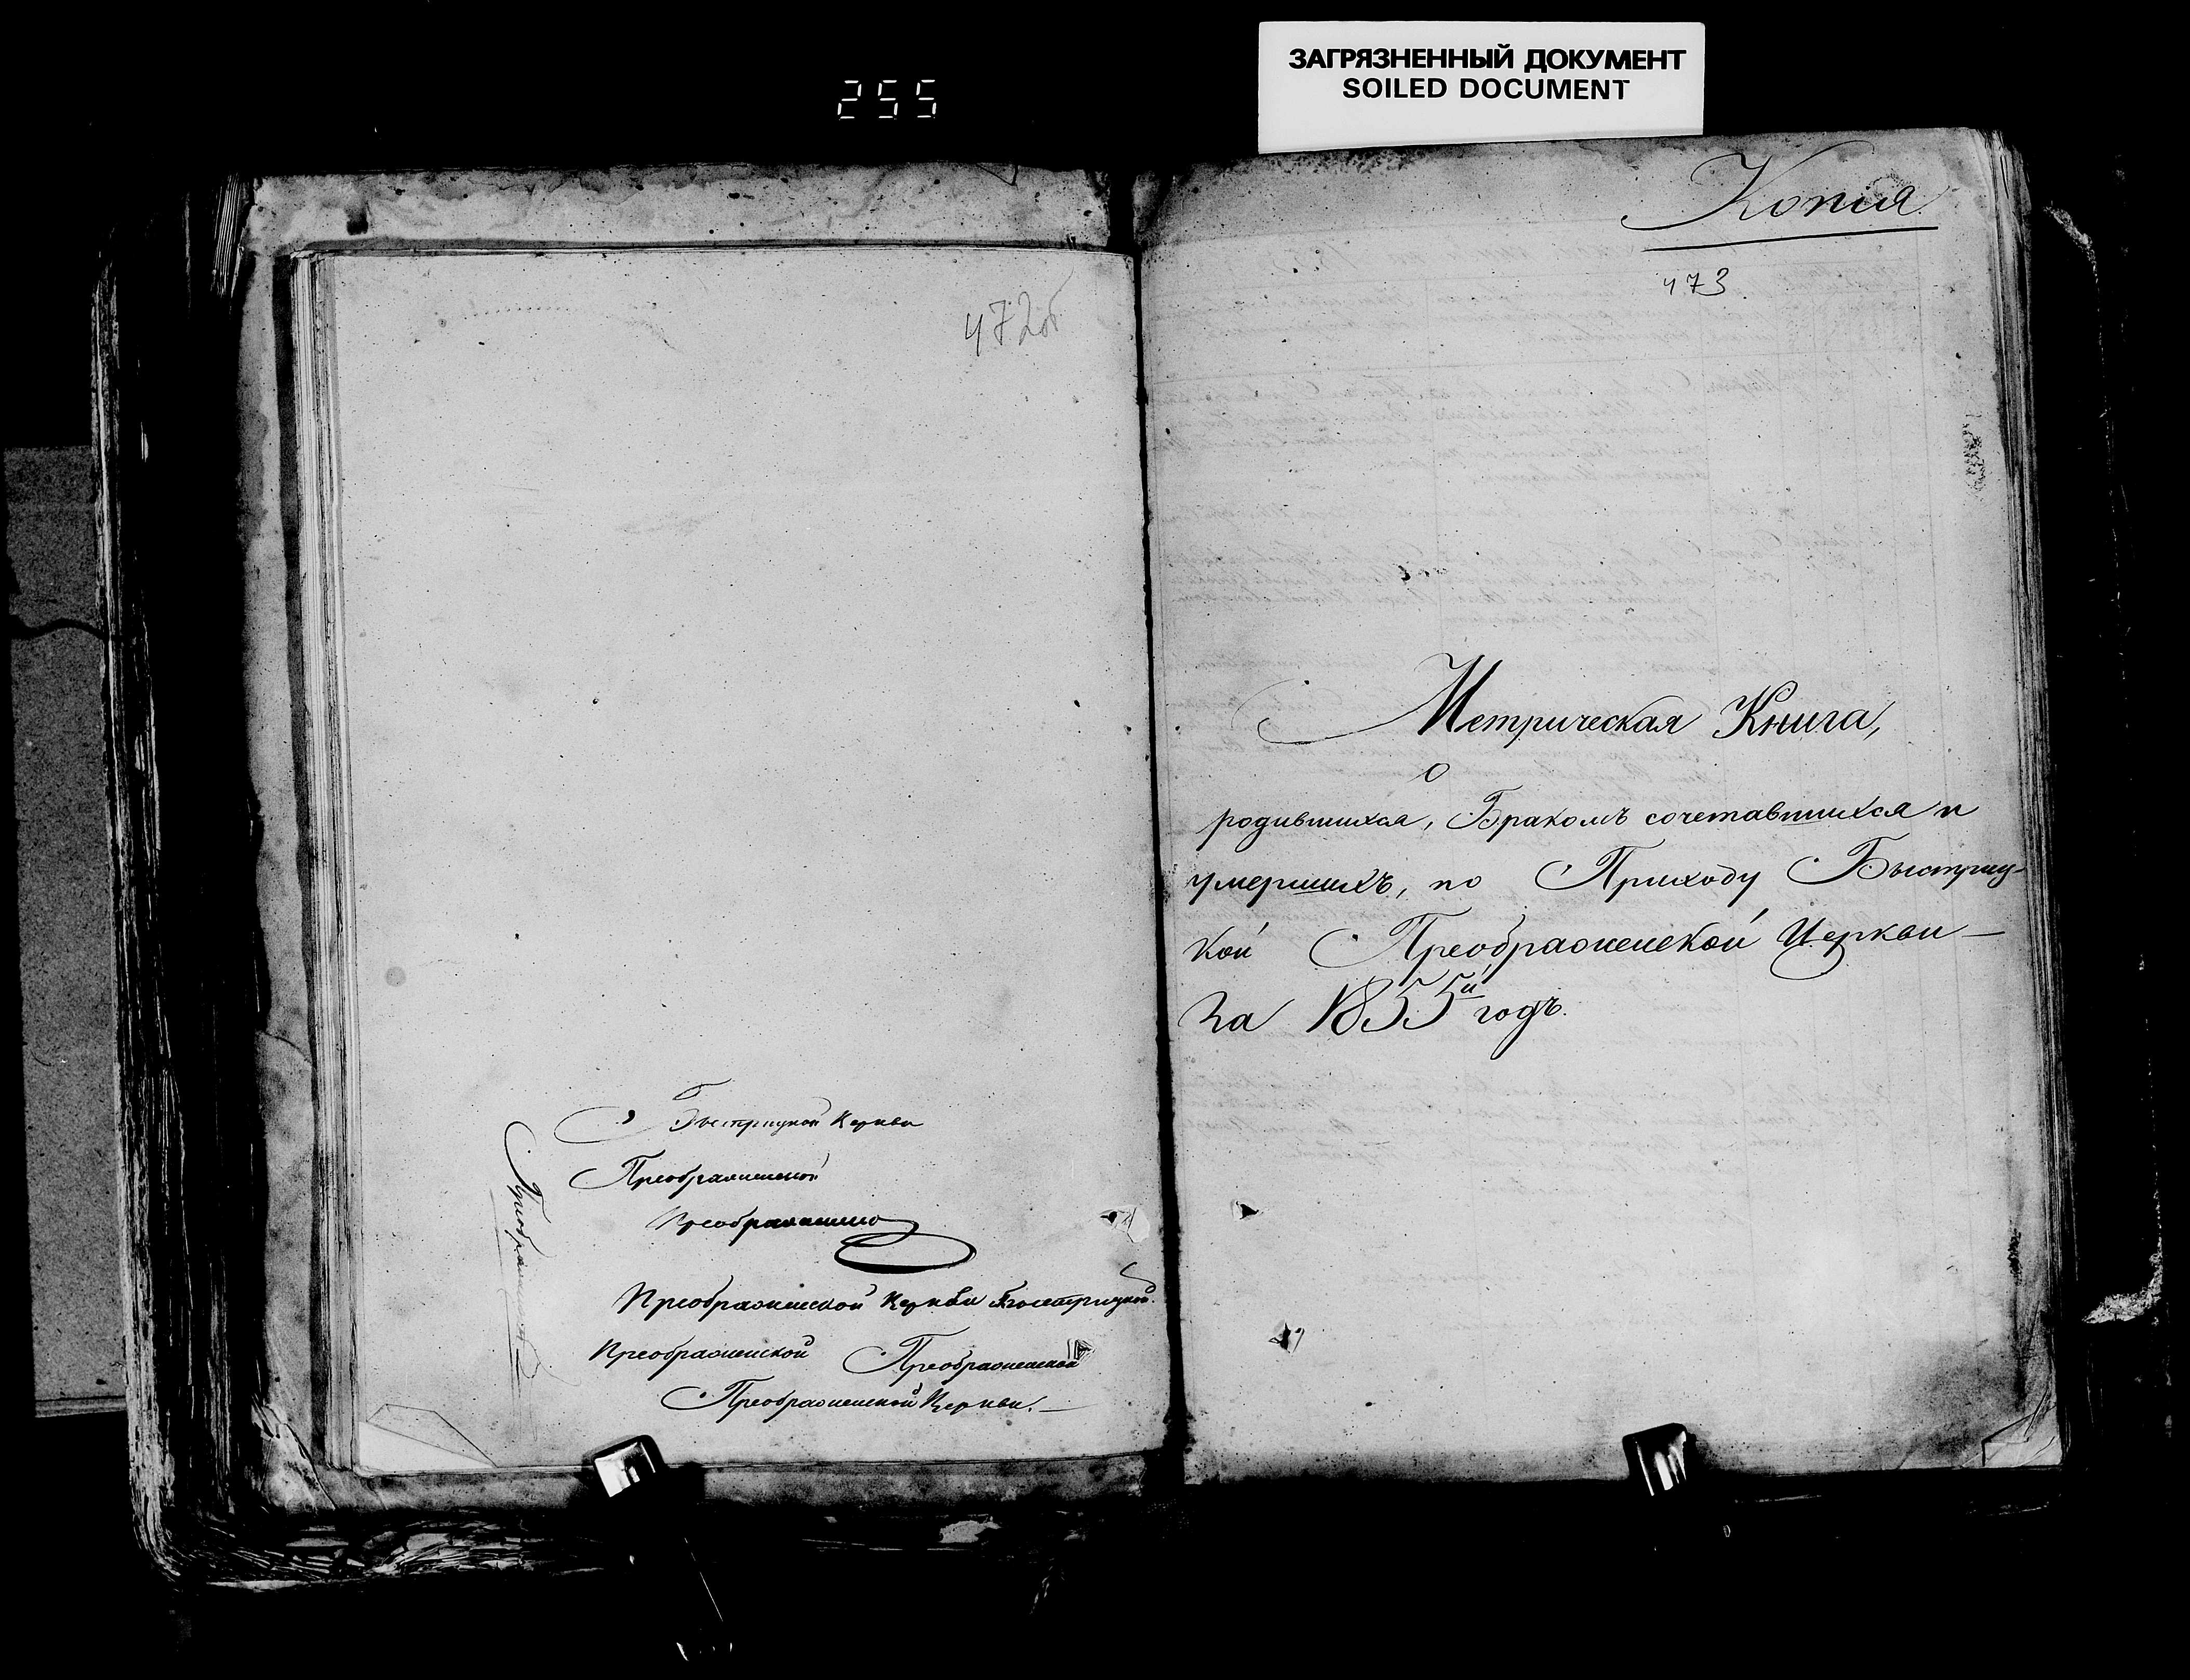 255
ЗАГРЯЗНЕННЫЙ ДОКУМЕНТ
SOILED DOCUMENT
472об
Быстрицкой Церкви
Преображенской
Преображенско
Преображенской Церкви Быстрицкой.
Преображенской Преображенской
Преображенской Церкви.—
Преображенской
Копия
473.
Метрическая Книга,
о
родившихся, Бракомъ сочетавшихся и
умершихъ, по Приходу Быстриц-
кой Преображенской Церкви —
за 1855й годъ.